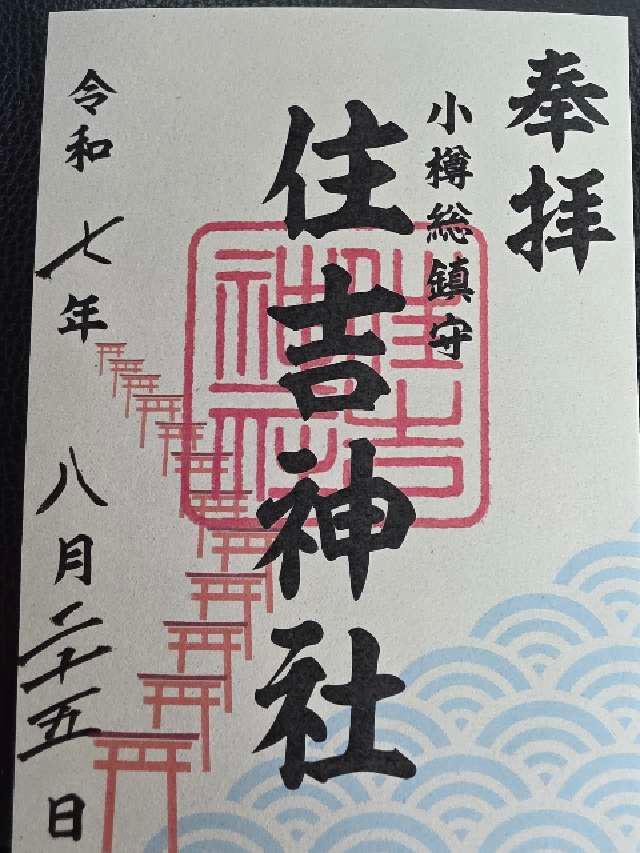 奉拝
小樽総鎮守
住吉神社
住吉神社
令和七年八月二十五日